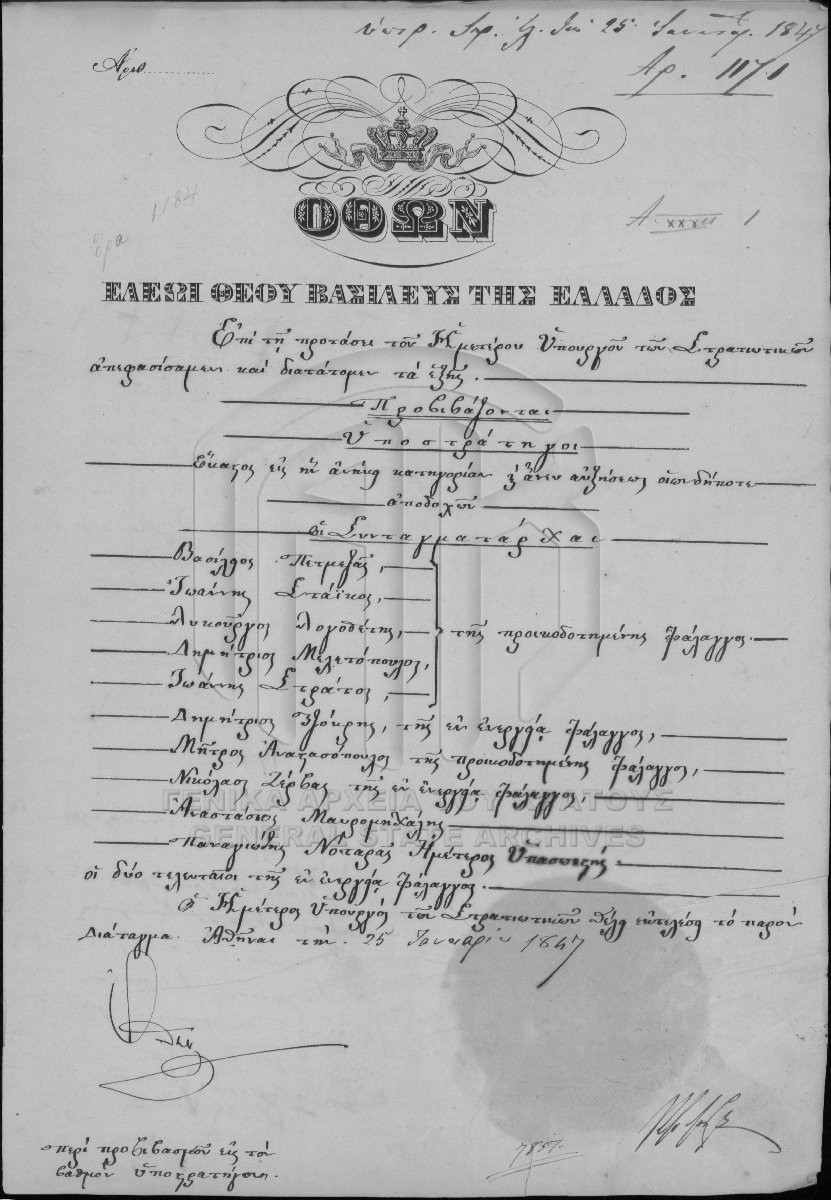 25 1847
Ἀριθ.
Αρ. 1171
1184
Α. XXXII 1
ΟΘΩΝ
ΕΛΕΩΙ ΘΕΟΥ ΒΑΣΙΛΕΥΣ ΤΗΣ ΕΛΛΑΔΟΣ
Ἐπὶ τῇ προτάσει τοῦ Ἡμετέρου Ὑπουργοῦ τῶν Στρατιωτικῶν
ἀπεφασίσαμεν καὶ διατάττομεν τὰ ἑξῆς.
Προβιβάζονται
Ὑποστράτηγοι
Ἕκαστος εἰς ἣν ἀνήκει κατηγορίαν καὶ ἄνευ αὐξήσεως οἱωνδήποτε
ἀποδοχῶν
οἱ Συνταγματάρχαι
Βασίλειος Πετμεζᾶς,
Ἰωάννης Στάϊκος,
Λυκοῦργος Λογοθέτης, τῆς προικοδοτημένης Φάλαγγος.
Δημήτριος Μελετόπουλος,
Ἰωάννης Στράτος,
Δημήτριος Τζόκρης, τῆς ἐν ἐνεργείᾳ Φάλαγγος,
Μῆτρος Ἀναστασόπουλος τῆς προικοδοτημένης Φάλαγγος,
Νικόλαος Ζέρβας τῆς ἐν ἐνεργείᾳ Φάλαγγος,
ΓΕΝΙΚΑ ΑΡΧΕΙΑ ΤΟΥ ΚΡΑΤΟΥΣ
Ἀναστάσιος Μαυρομιχάλης
GENERAL STATE ARCHIVES
Παναγιώτης Νοταρᾶς Ἡμέτερος Ὑπασπιστής
οἱ δύο τελευταῖοι τῆς ἐν ἐνεργείᾳ Φάλαγγος.
Ὁ Ἡμέτερος Ὑπουργὸς τῶν Στρατιωτικῶν θέλει ἐκτελέσει τὸ παρὸν
Διάταγμα. Ἀθῆναι τὴν 25 Ἰανουαρίου 1847
περὶ προβιβασμῶν εἰς τὸν
βαθμὸν ὑποστρατήγου.